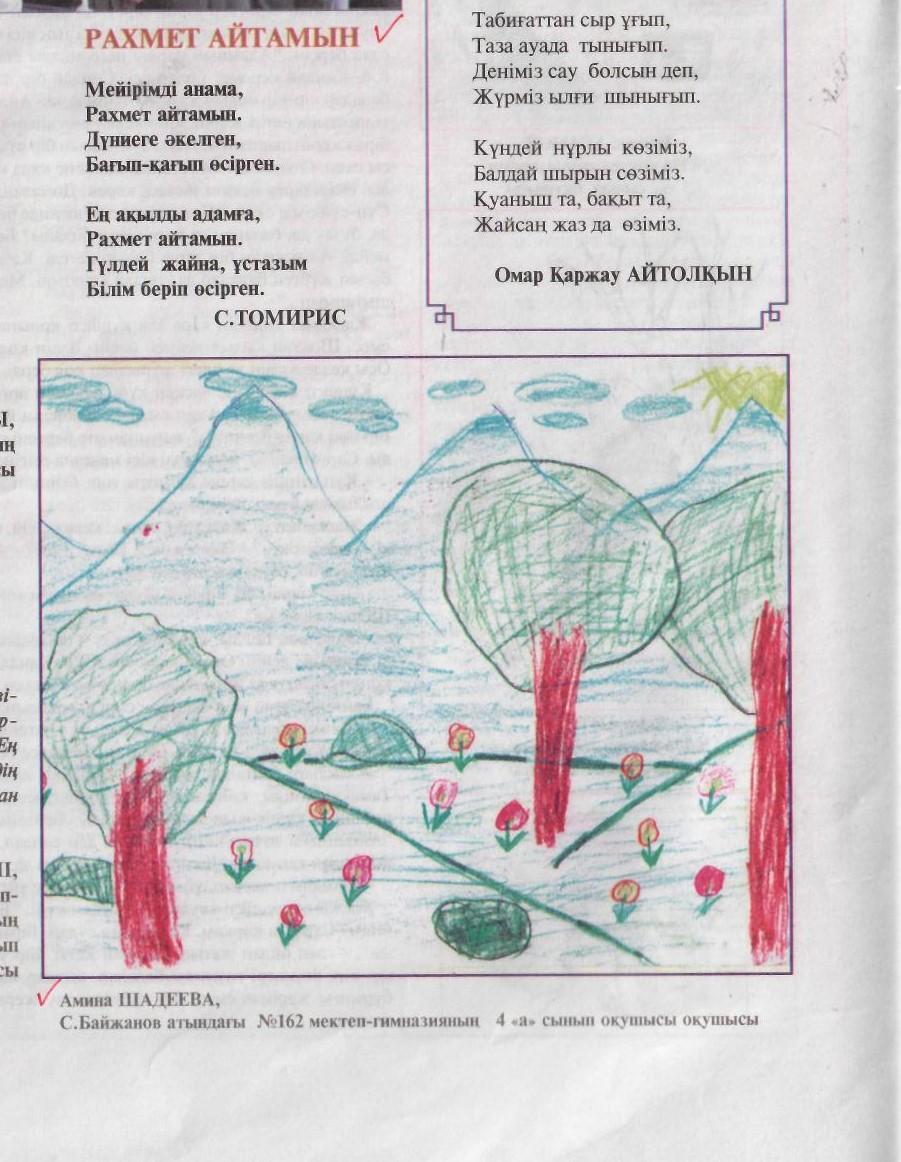 РАХМЕТ АЙТАМЫН
Мейірімді анама,
Рахмет айтамын.
Дүниеге әкелген,
Бағып-қағып өсірген.
Ең ақылды адамға,
Рахмет айтамын.
Гүлдей жайна, ұстазым
Білім беріп өсірген.
С.ТОМИРИС
Табиғаттан сыр ұғып,
Таза ауада тынығып.
Деніміз сау болсын деп,
Жүрміз ылғи шынығып.
Күндей нұрлы көзіміз,
Балдай шырын сөзіміз.
Қуаныш та, бақыт та,
Жайсаң жаз да өзіміз.
Омар Қаржау АЙТОЛҚЫН
Амина ШАДЕЕВА,
С.Байжанов атындағы №162 мектеп-гимназияның 4 «а» сынып оқушысы оқушысы